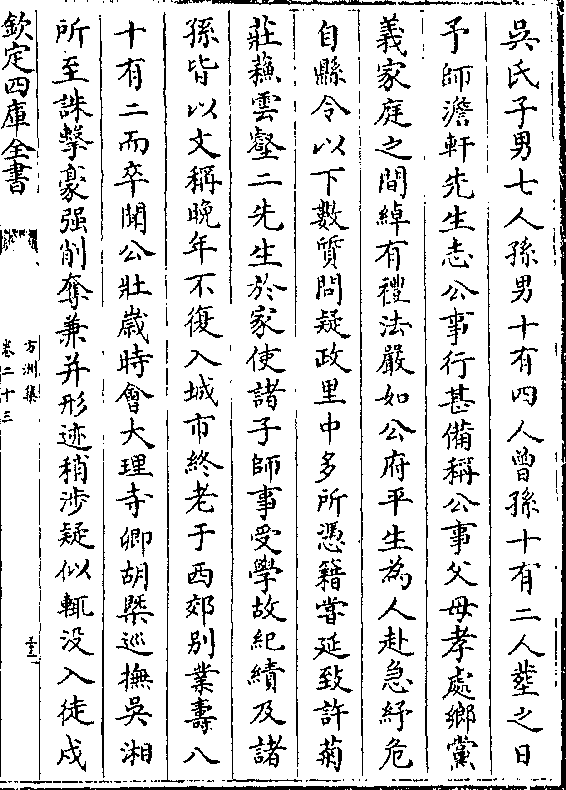 吳氏子男七人孫男十有四人曾孫十有二人塟之日
予師澹軒先生志公事行甚備稱公事父母孝處鄉黨
義家庭之間綽有禮法嚴如公府平生為人赴急紓危
自縣令以下數質問疑政里中多所憑籍嘗延致許菊
莊蘓雲壑二先生於家使諸子師事受學故紀績及諸
孫皆以文稱晚年不復入城市終老于西郊别業壽八
十有二而卒聞公壯歳時會大理寺卿胡槩巡撫吳湘
所至誅擊豪强削奪兼并形迹稍涉疑似輒没入徒戍
欽定四庫全書
方洲集
卷二十三